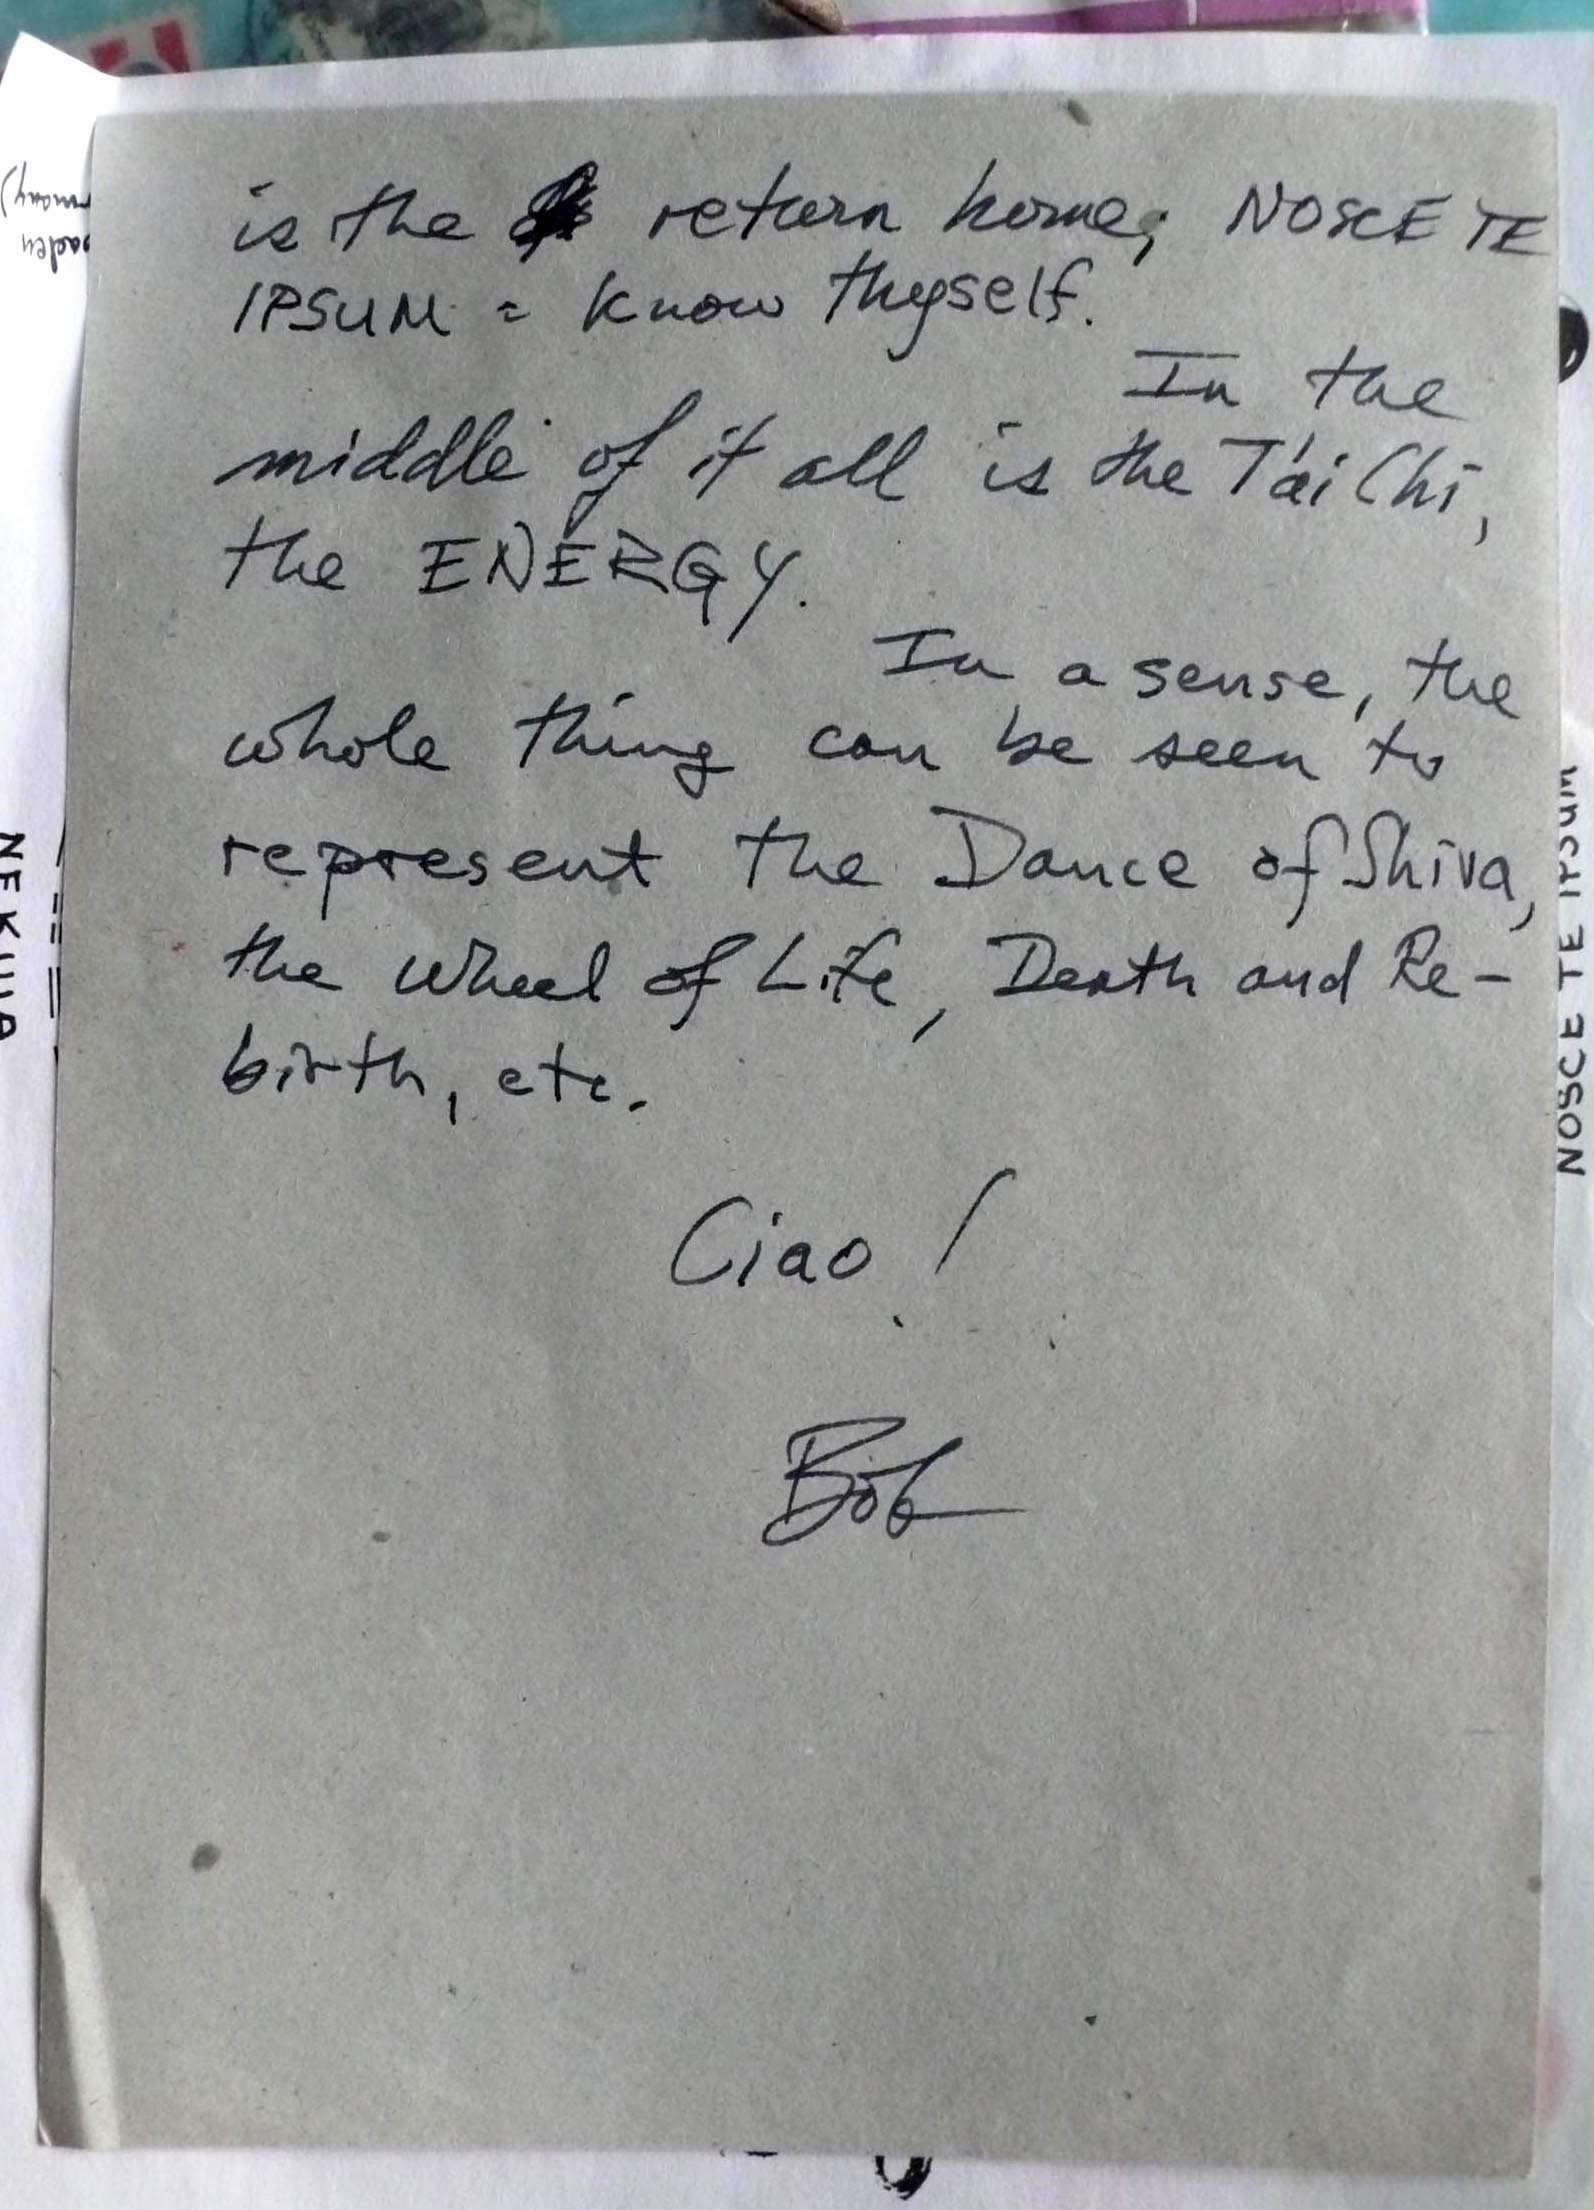 is the return home; NOSCE TE
IPSUM = Know thyself.
In the
middle of it all is the T'ai Chi,
the ENERGY.
In a sense, the
whole thing can be seen to
represent the Dance of Shiva,
the Wheel of Life, Death and Re-
birth, etc.
Ciao!
Bob
NOSCE TE IPSUM
NEKUIA